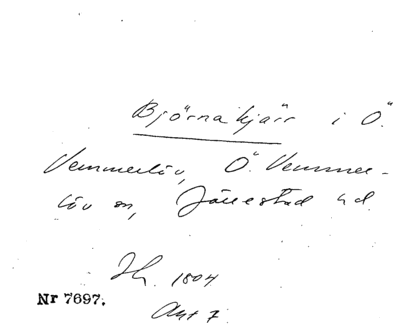 Björnakjärr i Ö.
Vemmerlöv, Ö. Vemmer-
löv sn, Järrestad hd.
1804
Nr 7697.
Akt 7